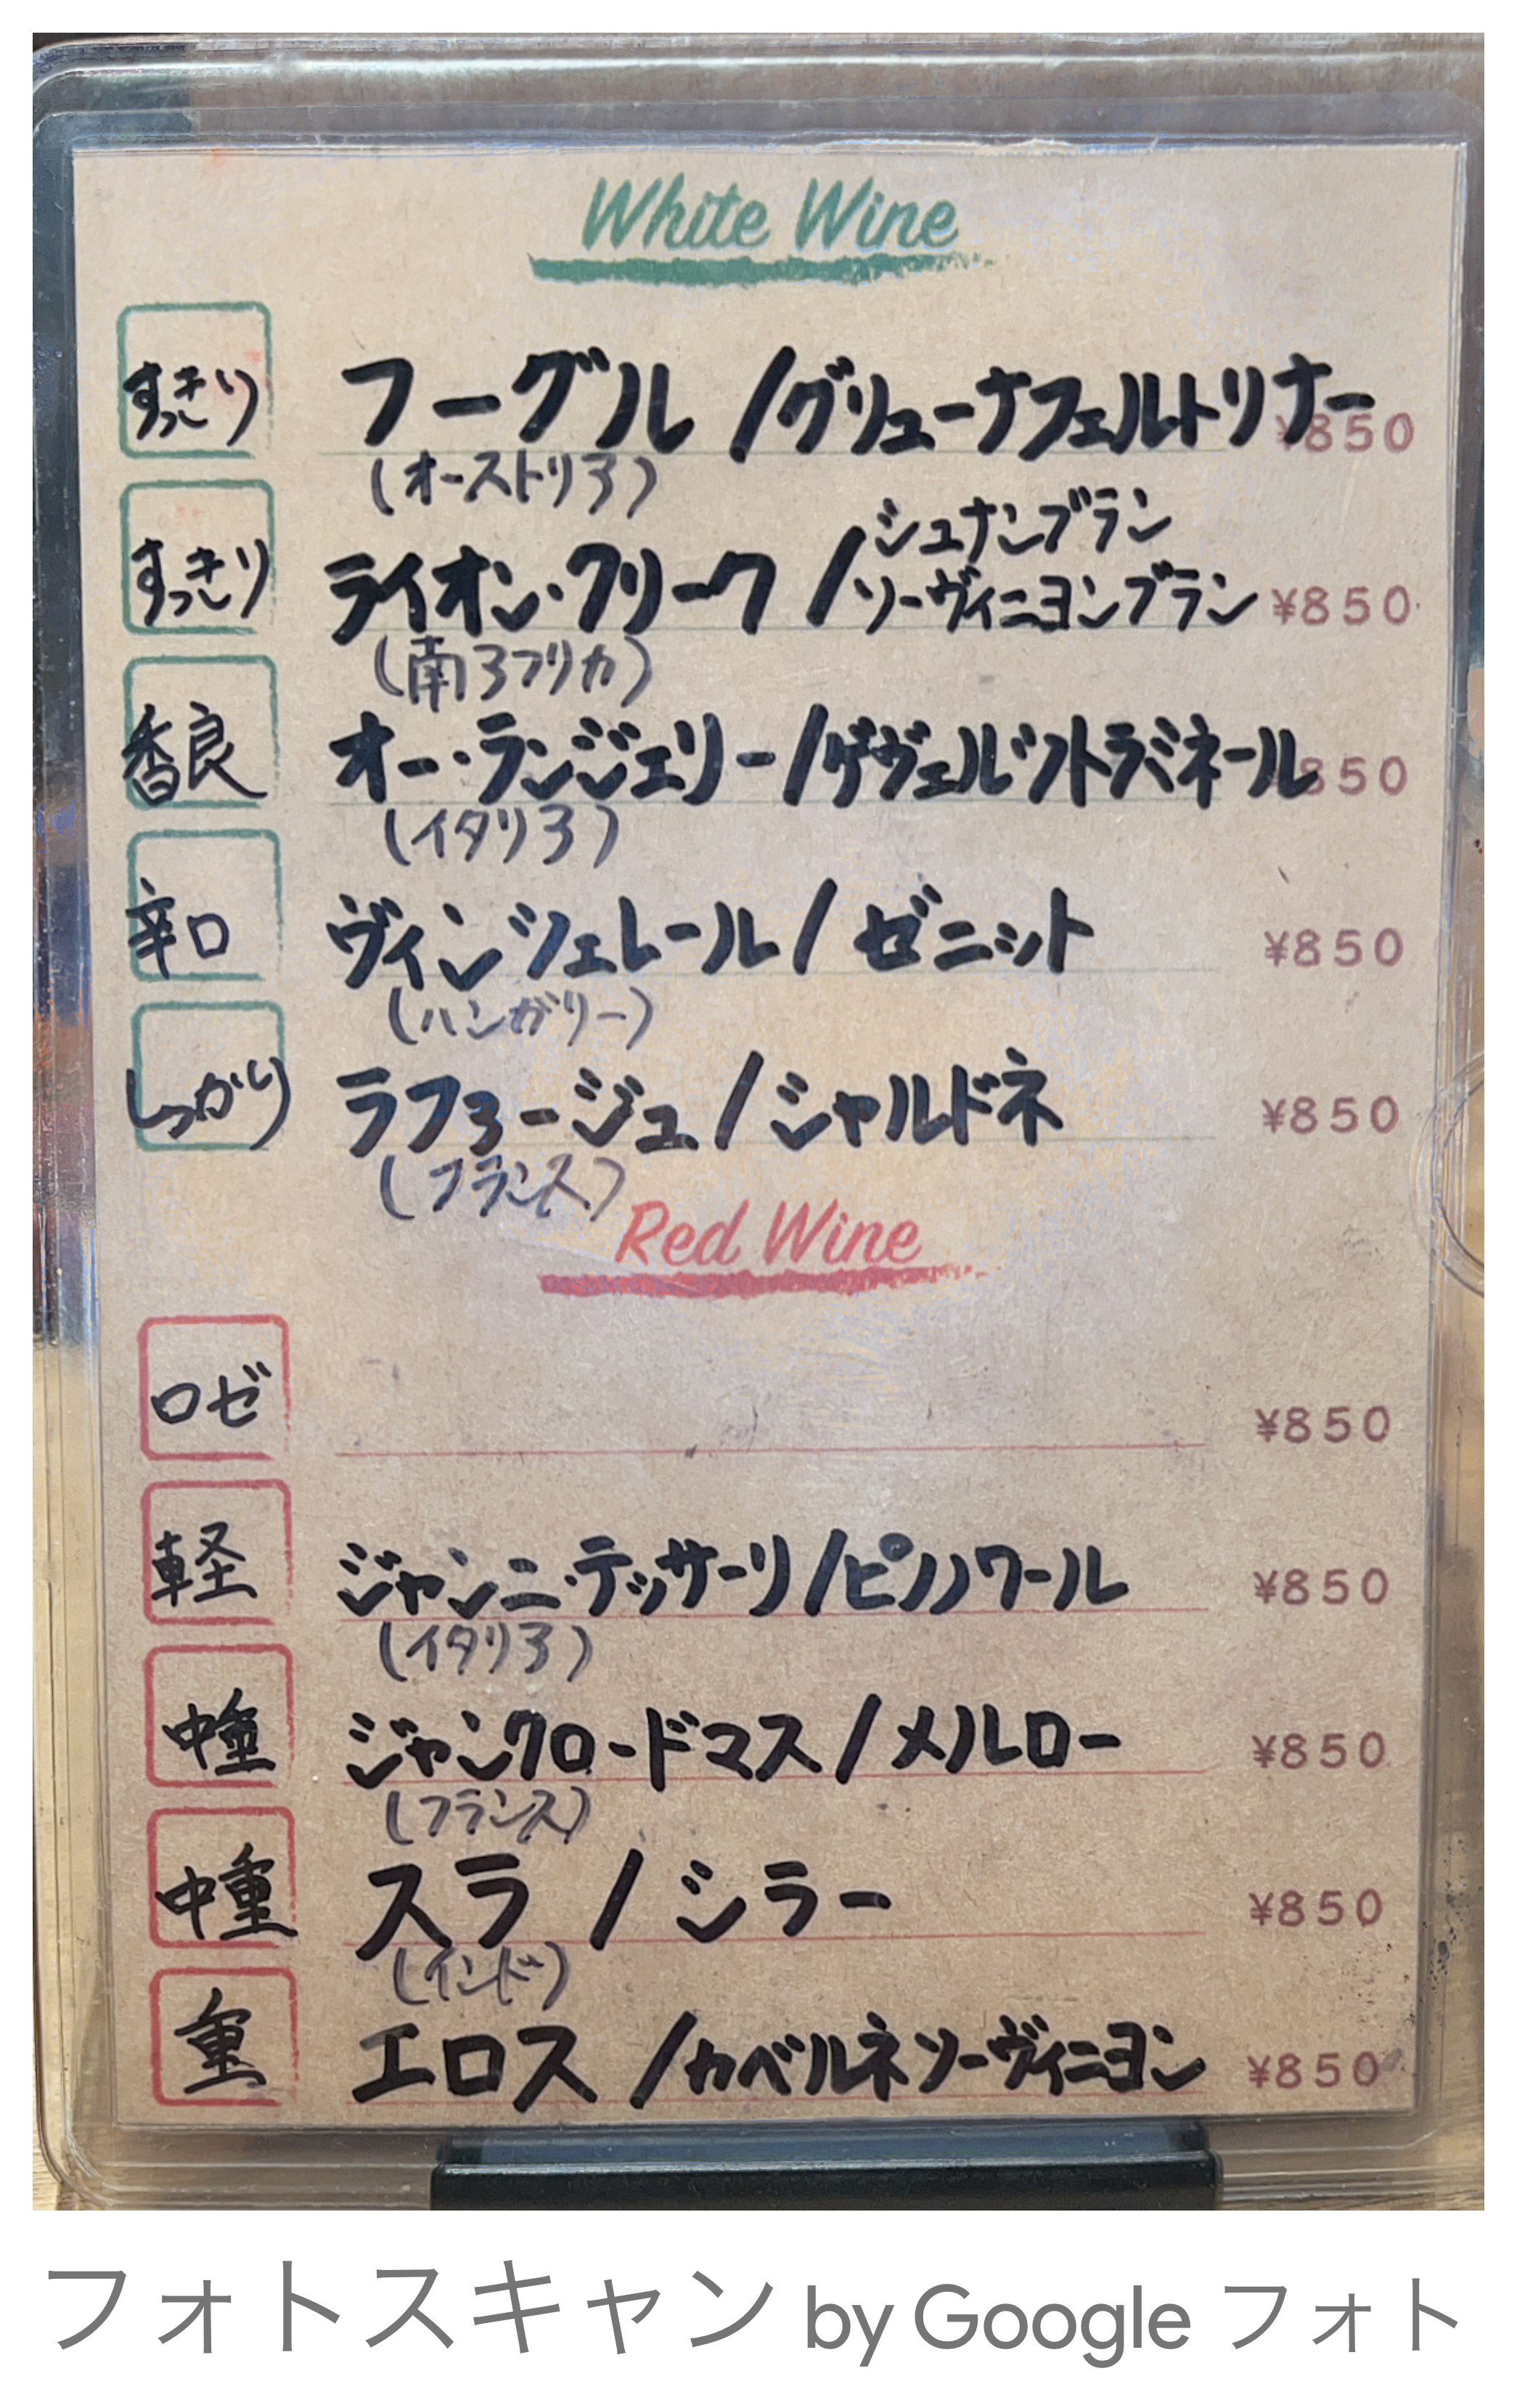 White Wine
すっきり フーグル/グリューナフェルトリナー ¥850
(オーストリア)
シュナンブラン
すっきり ライオン・クリーク/ソーヴィニヨンブラン ¥850
(南アフリカ)
香良 オー・ランジェリー/ゲヴェルツトラミネール 850
(イタリア)
辛口 ヴィンツェレール/ゼニット ¥850
(ハンガリー)
しっかり ラフォージュ/シャルドネ ¥850
(フランス)
Red Wine
ロゼ ¥850
軽 ジャンニ・テッサーリ/ピノノワール ¥850
(イタリア)
中重 ジャンクロードマス/メルロー ¥850
(フランス)
中重 スラ/シラー ¥850
(インド)
重 エロス/カベルネソーヴィニヨン ¥850
フォトスキャン by Google フォト